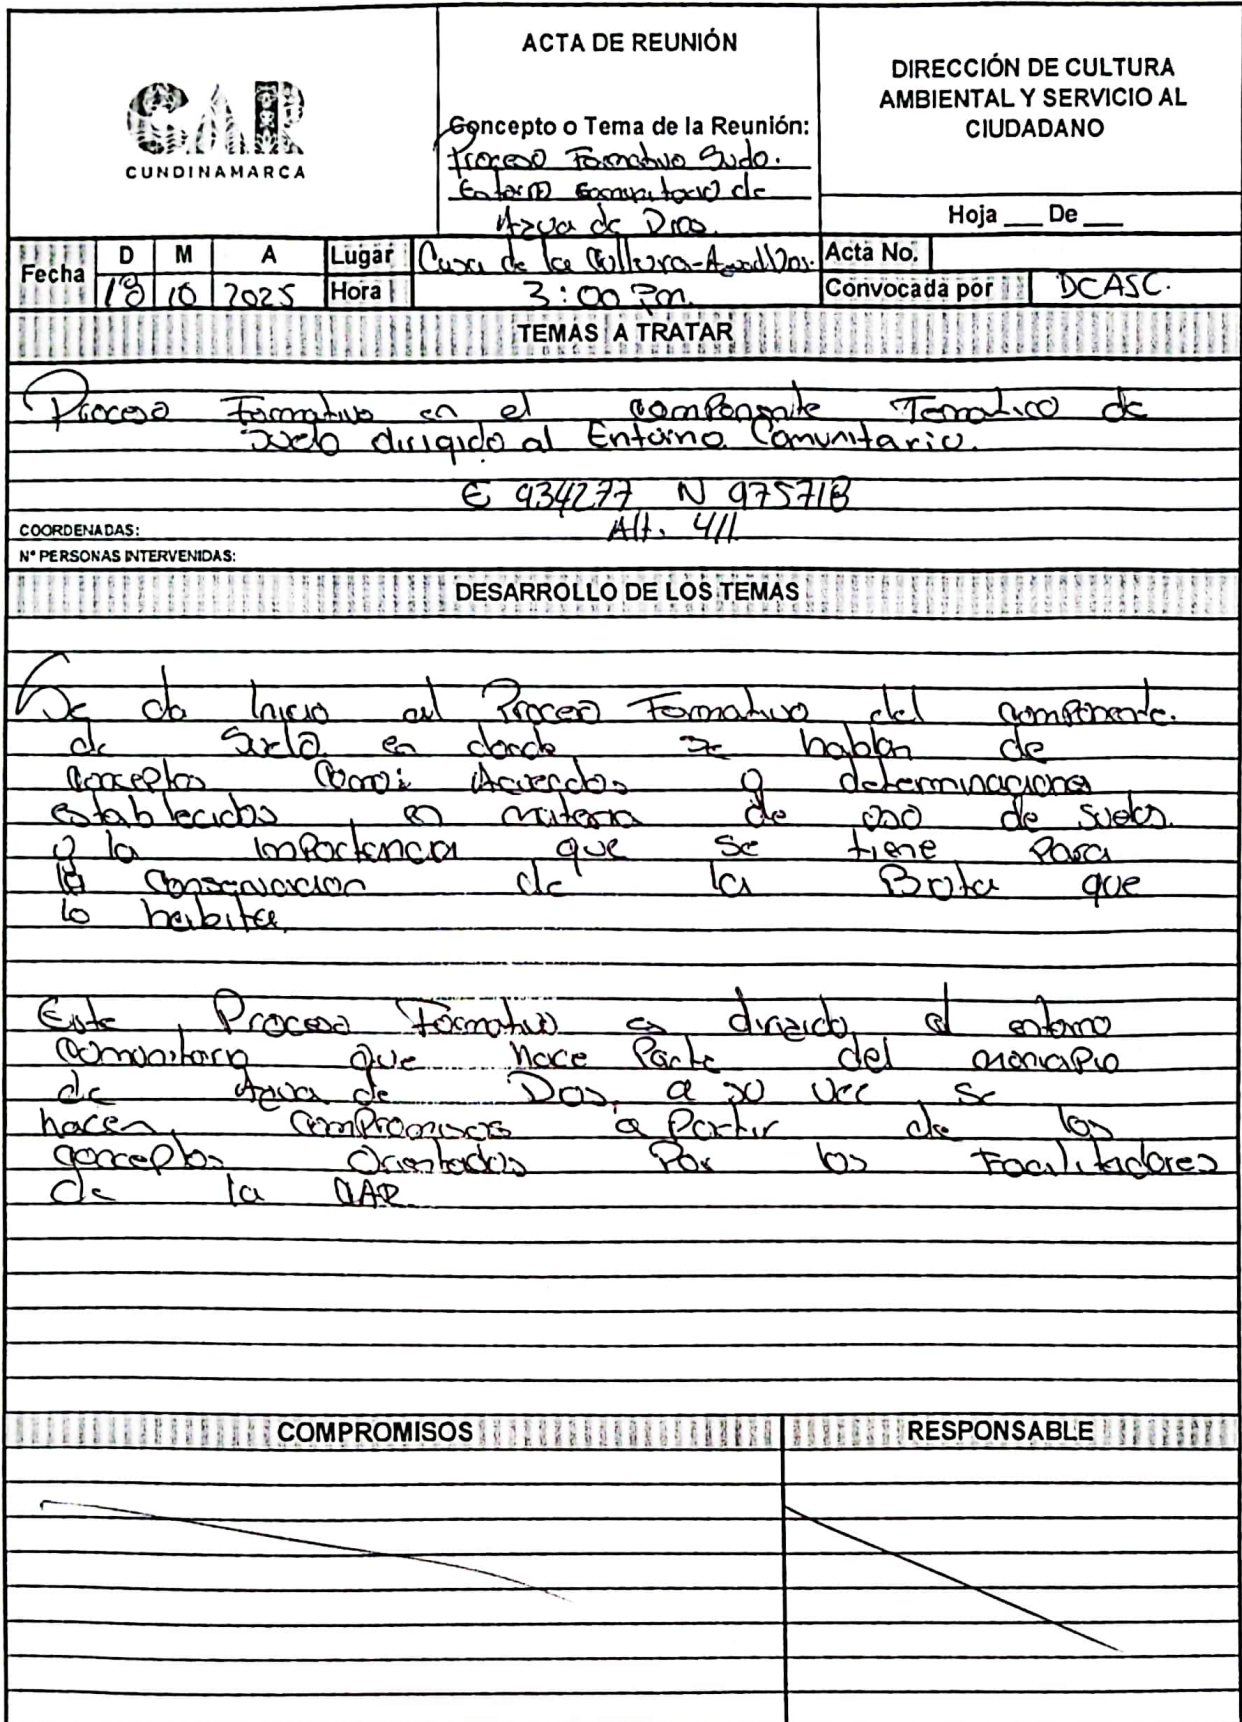 CAR
CUNDINAMARCA
ACTA DE REUNIÓN
Concepto o Tema de la Reunión:
Proceso Formativo Suelo.
Entorno Comunitario de
Agua de Dios.
DIRECCIÓN DE CULTURA
AMBIENTAL Y SERVICIO AL
CIUDADANO
Hoja ___ De ___
Fecha D M A Lugar Casa de la Cultura-Agua d Dios. Acta No.
18 10 2025 Hora 3:00 Pm. Convocada por DCASC.
TEMAS A TRATAR
Proceso Formativo en el componente Tematico de
Suelo dirigido al Entorno Comunitario.
E 934277 N 975718
COORDENADAS: Alt. 411
N° PERSONAS INTERVENIDAS:
DESARROLLO DE LOS TEMAS
Se da Inicio al Proceso Formativo del componente.
de Suelo en donde se hablan de
conceptos como: Acuerdos y determinaciones
establecidos en materia de uso de suelos.
y la importancia que se tiene Para
la Conservacion de la Biota que
lo habita.
Este Proceso Formativo es dirigido al entorno
Comunitario que hace Parte del municipio
de Agua de Dios, a su vez se
hacen compromisos a Partir de los
conceptos Orientados Por los Facilitadores
de la CAR.
COMPROMISOS RESPONSABLE